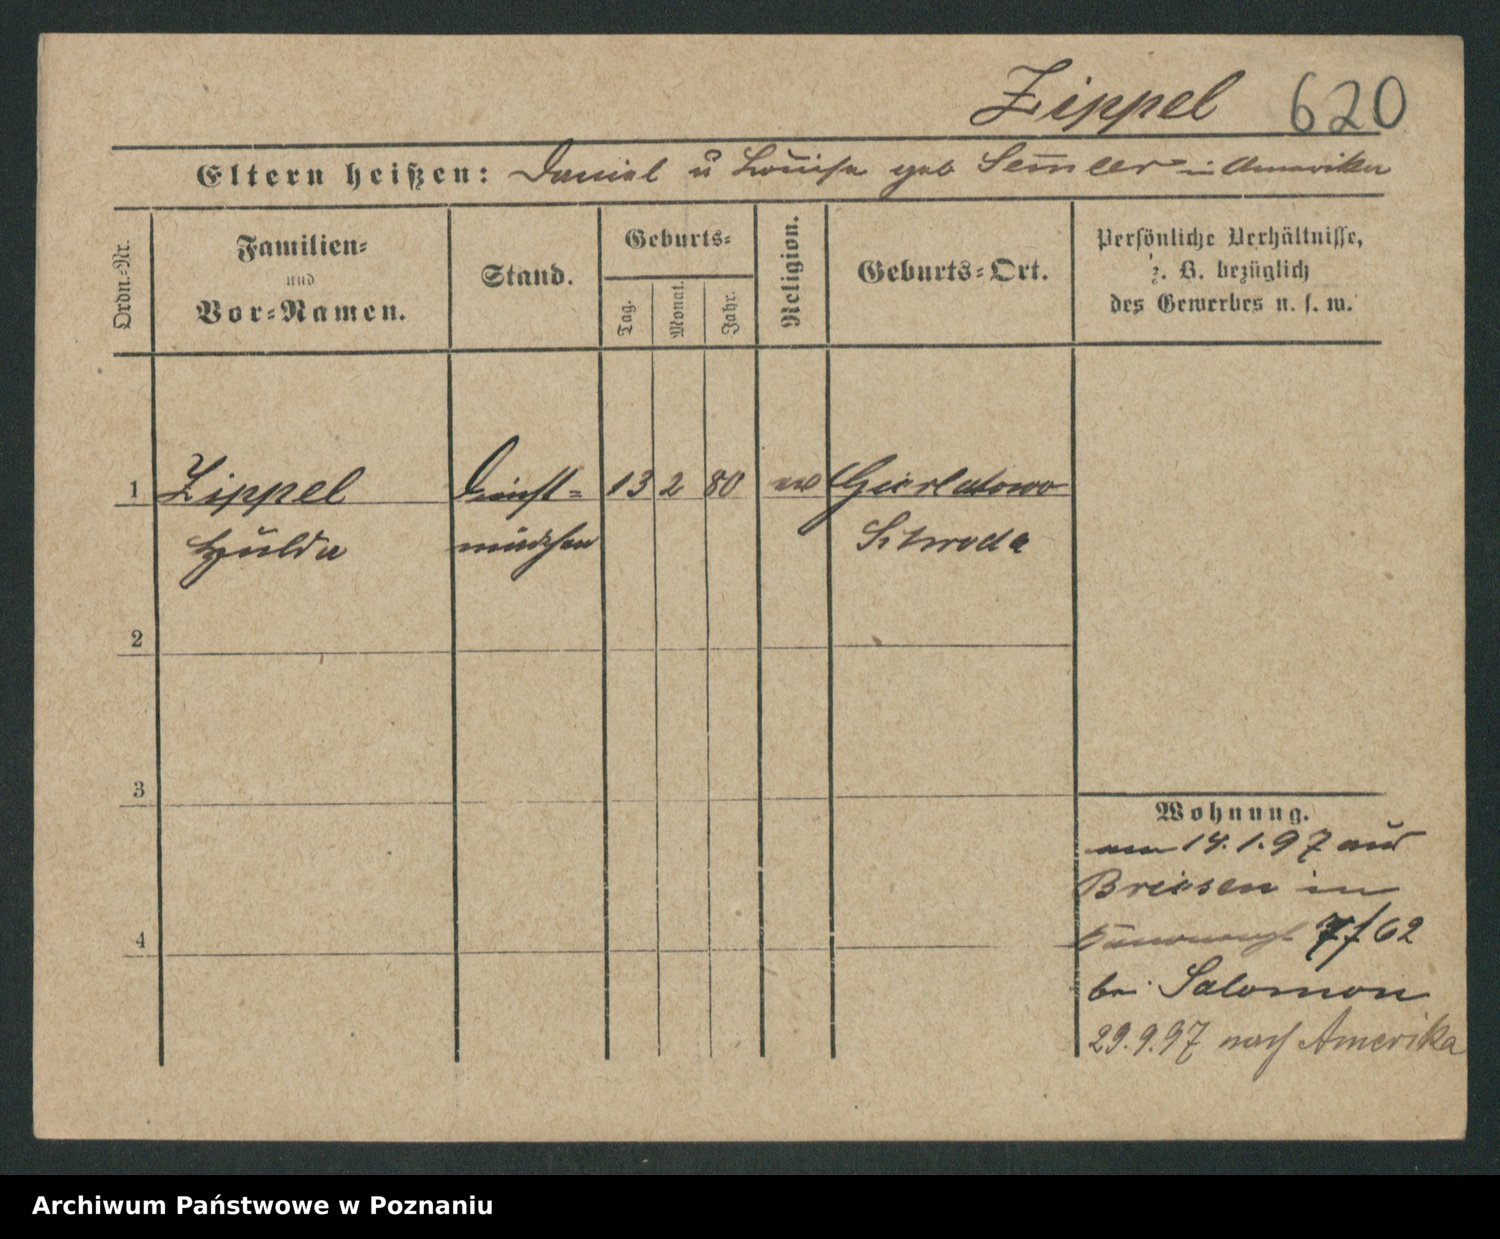 Zippel 620
Eltern heißen: Daniel u Louise geb Semler in Amerika
Ordn.-Nr.
Familien-
und
Vor-Namen.
Stand.
Geburts-
Tag.
Monat.
Jahr.
Religion.
Geburts-Ort.
Persönliche Verhältnisse,
z. B. bezüglich
des Gewerbes u. s. w.
1 Zippel Dienst- 13 2 80 ev Gierlatowo
Hulda mädchen Schroda
2
3
4
Wohnung.
am 14.1.97 aus
Briesen in
7/62
bei Salomon
29.9.97 nach Amerika
Archiwum Państwowe w Poznaniu